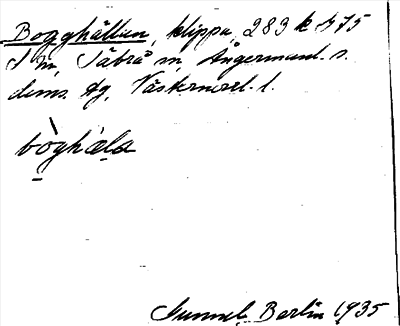 Bogghällan, klippa, 283 k 475
I m, Säbrå sn, Ångermanl. s.
doms. tg, Västernorrl. l.
bòghæla
Gunnel Berlin 1935